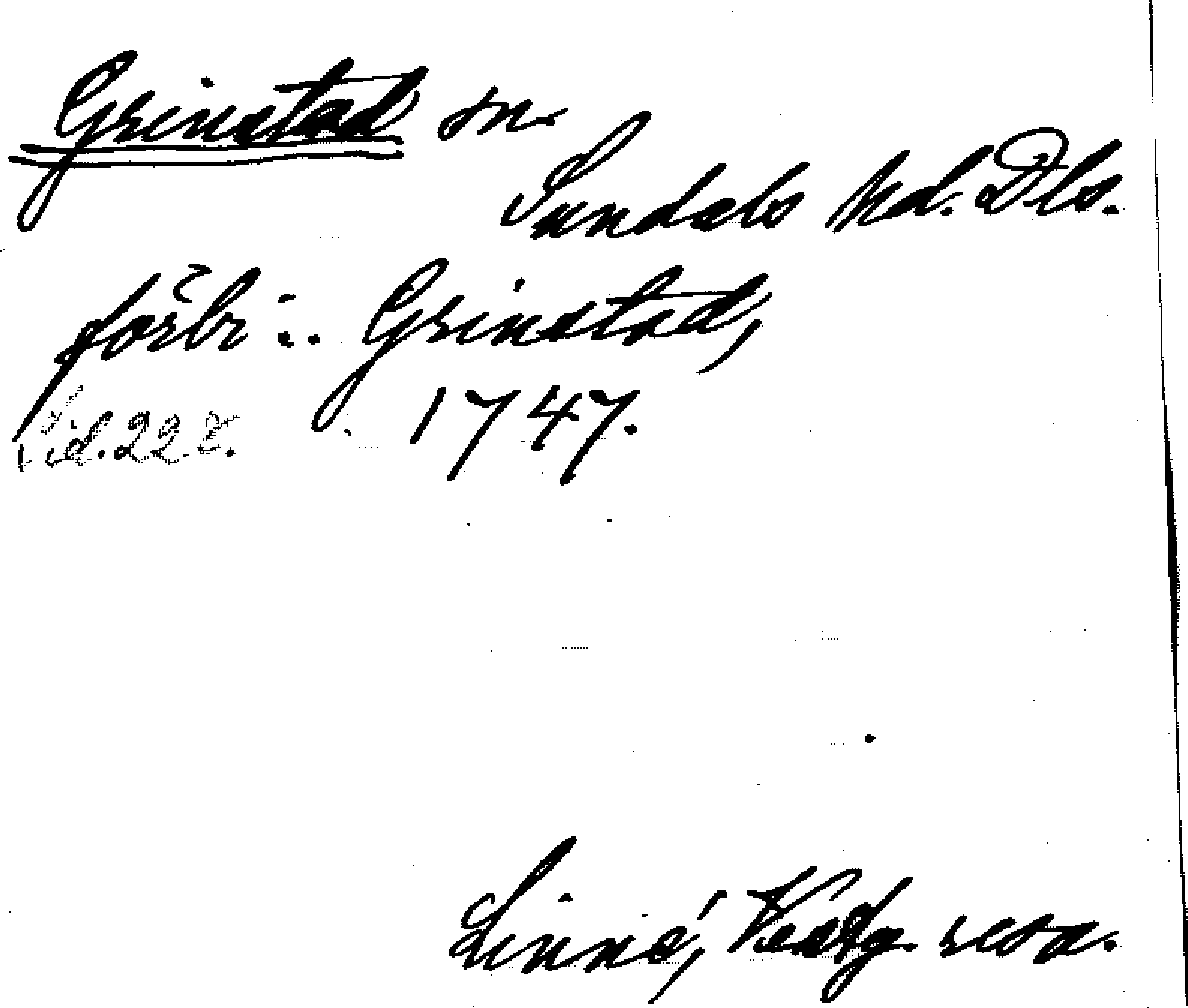 Grinstad sn.
Sundals hd. Dls.
förbi .. Grinstad,
1747.
Sid. 228.
Linné, Västg. resa.